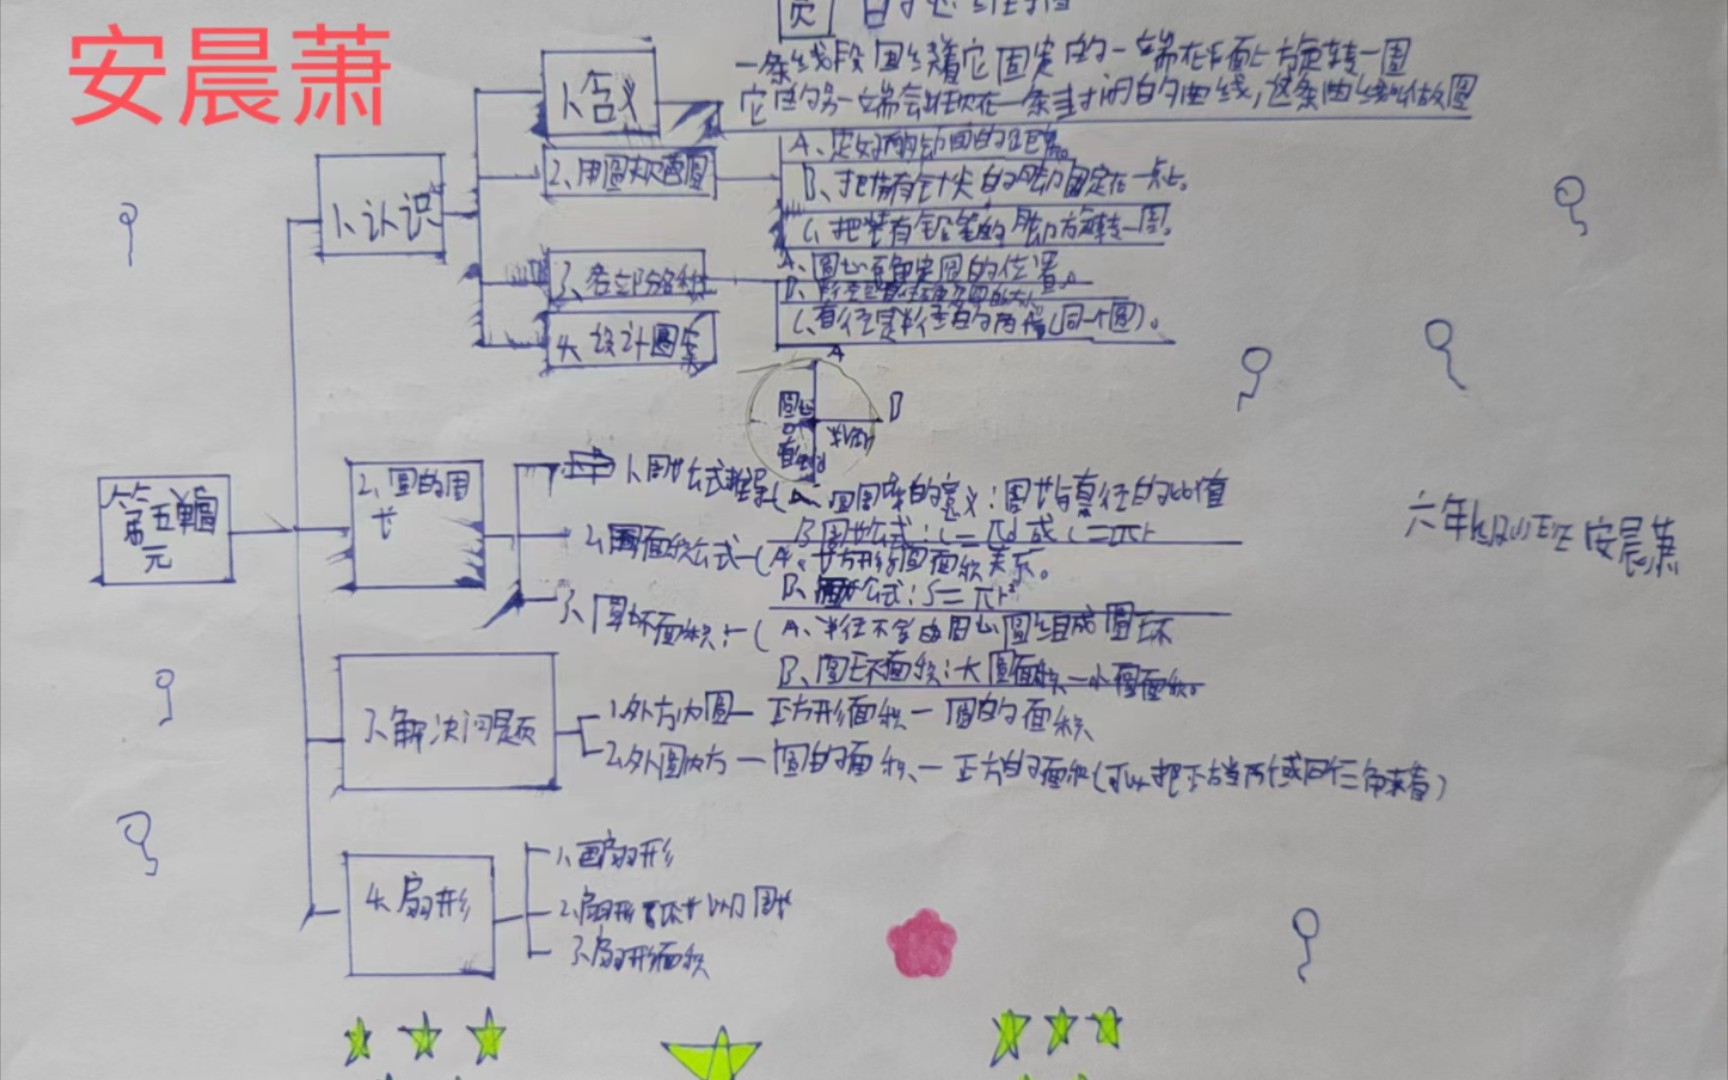 安晨萧
一条线段围绕着它固定的一端在平面上旋转一圈
它的另一端会出现在一条封闭的曲线,这条曲线叫做圆
1、含义
2、用圆规画圆
A、定好两脚间的距离。
B、把带有针尖的脚固定在一点上。
C、把装有铅笔的脚旋转一圈。
1、认识
3、各部分名称
A、圆心确定圆的位置。
C、直径是半径的两倍(同一个圆)。
4、设计图案
A
B
圆心
O
半径r
直径d
第五单元
2、圆的周长
1、周长公式推导(
A、圆周率的意义:周长与直径的比值
B 周长公式:C=πd或C=2πr
2、圆面积公式—(A、长方形与圆面积关系。
B、公式:S=πr²
3、圆环面积:—(
A、半径不等的同心圆组成圆环
B、圆环面积:大圆面积—小圆面积。
3、解决问题
1、外方内圆—正方形面积—圆的面积
2、外圆内方—圆的面积—正方的面积(可以把正方当两个或四个三角来看)
4、扇形
1、画扇形
2、扇形 周长
3、扇形面积
六年 班 安晨萧